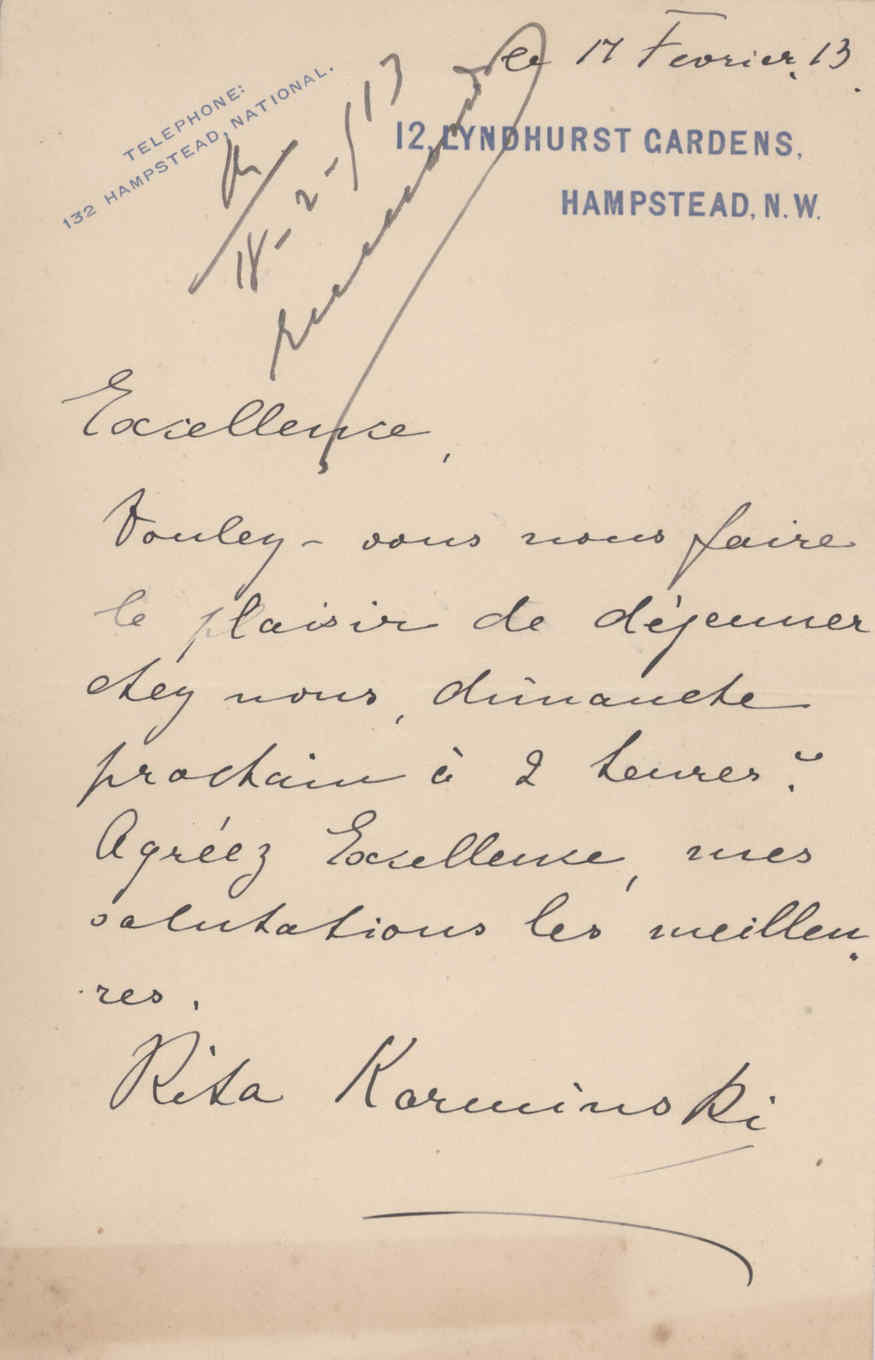 le 17 Fevrier. 13.
TELEPHONE:
132 HAMPSTEAD, NATIONAL.
12, LYNDHURST GARDENS,
HAMPSTEAD, N.W.
18-2-13
Excellence,
Voulez-vous nous faire
le plaisir de déjeuner
chez nous, dimanche
prochain à 2 heures?
Agréez Excellence, mes
salutations les meilleu
res.
Rita Karminski